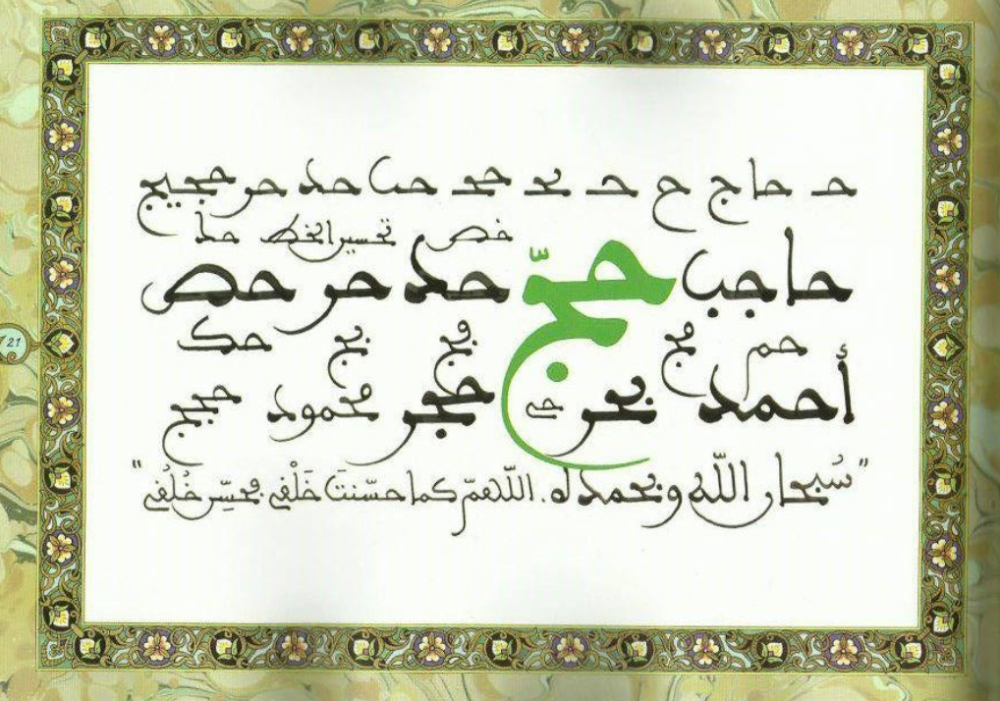 حـ حاج ح حـ حر حجيج
تحسين الخط
حاجب حجّ حد حر حص
حم مح بح حك
أحمد بحر حجر محمود حجيج
"سُبحان اللّه وبحمده. اللّهمّ كما حسّنتَ خَلْقي فحسِّن خُلُقي"
21